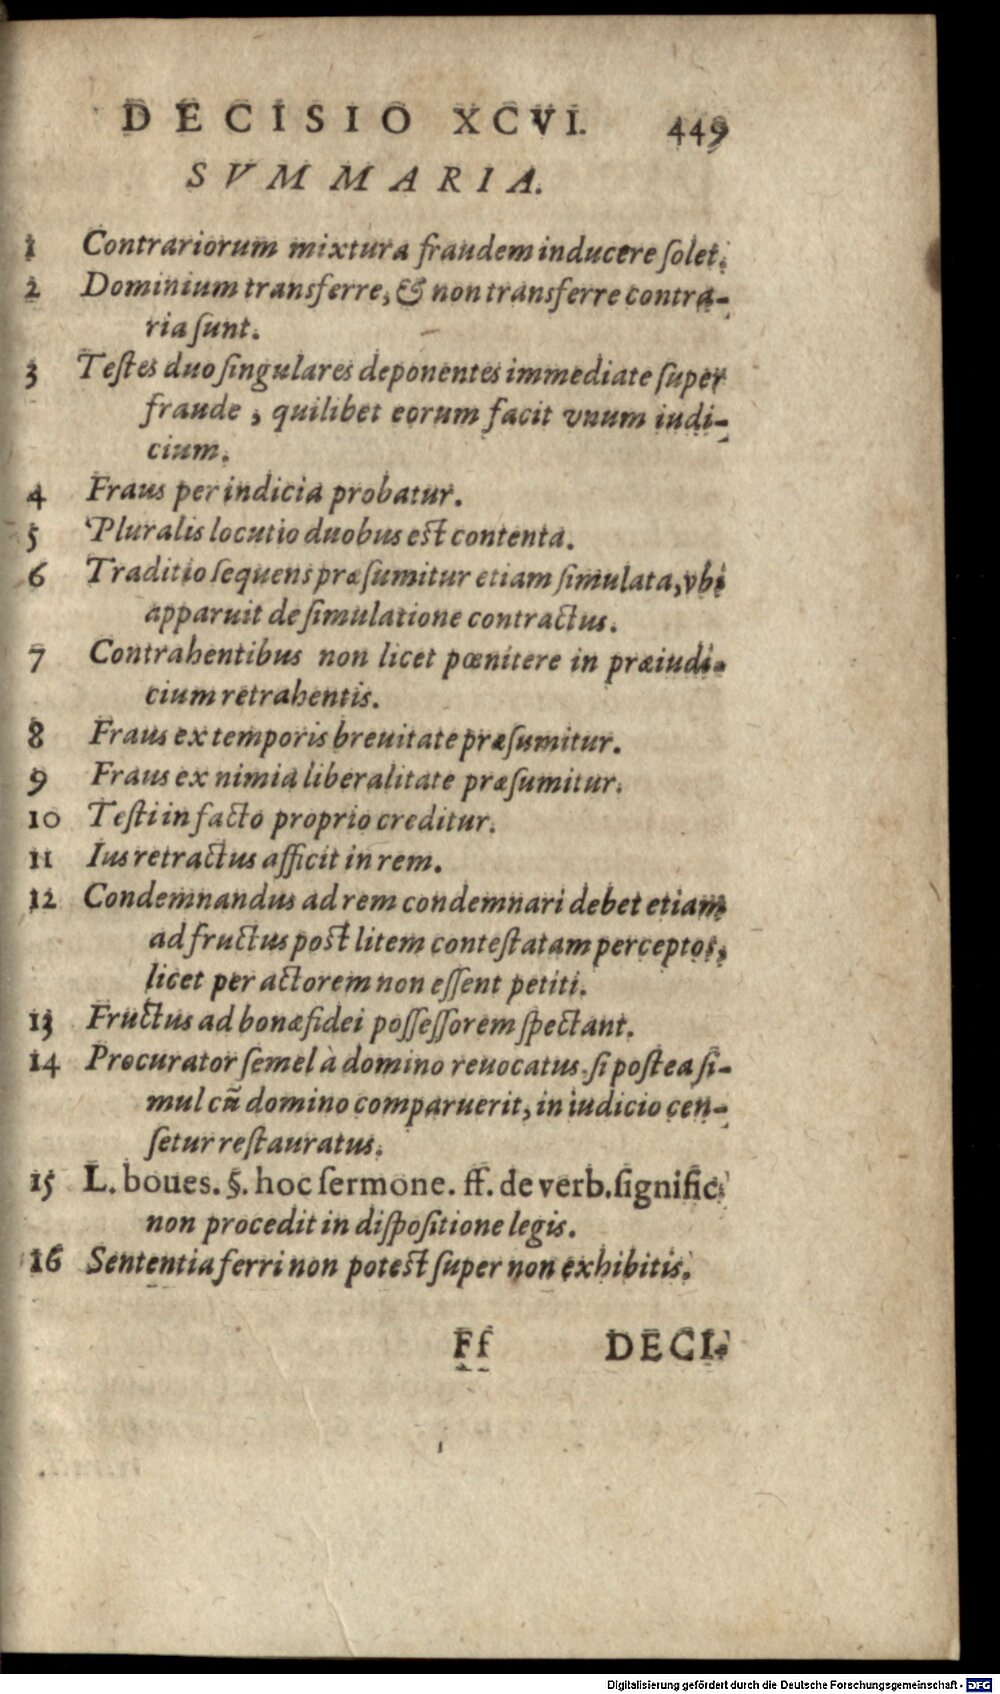 DECISIO XCVI. 449
SVMMARIA.
1 Contrariorum mixtura fraudem inducere ſolet.
2 Dominium transferre, & non transferre contra-
ria ſunt.
3 Teſtes duo ſingulares deponentes immediate ſuper
fraude, quilibet eorum facit vnum iudi-
cium.
4 Fraus per indicia probatur.
5 Pluralis locutio duobus eſt contenta.
6 Traditio ſequens præſumitur etiam ſimulata, vbi
apparuit de ſimulatione contractus.
7 Contrahentibus non licet pœnitere in præiudi-
cium retrahentis.
8 Fraus ex temporis breuitate præſumitur.
9 Fraus ex nimia liberalitate præſumitur.
10 Teſti in facto proprio creditur.
11 Ius retractus afficit in rem.
12 Condemnandus ad rem condemnari debet etiam
ad fructus poſt litem conteſtatam perceptos,
licet per actorem non eſſent petiti.
13 Fructus ad bonæ fidei poſſeſſorem ſpectant.
14 Procurator ſemel à domino reuocatus. ſi poſtea ſi-
mul cũ domino comparuerit, in iudicio cen-
ſetur reſtauratus.
15 L. boues. §. hoc ſermone. ff. de verb. ſignific.
non procedit in diſpoſitione legis.
16 Sententia ferri non poteſt ſuper non exhibitis.
Ff DECI-
Digitalisierung gefördert durch die Deutsche Forschungsgemeinschaft - DFG